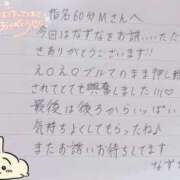 指名60分Mさんへ
今回はなずなをお誘いいただ
きありがとうございます!!
え○え○ブルでのまま押し倒
されてとても興奮しました!!!♡
最後は後ろからいっぱい
気持ちよくしてもらったね♪
またお誘いお待ちしてます
なず